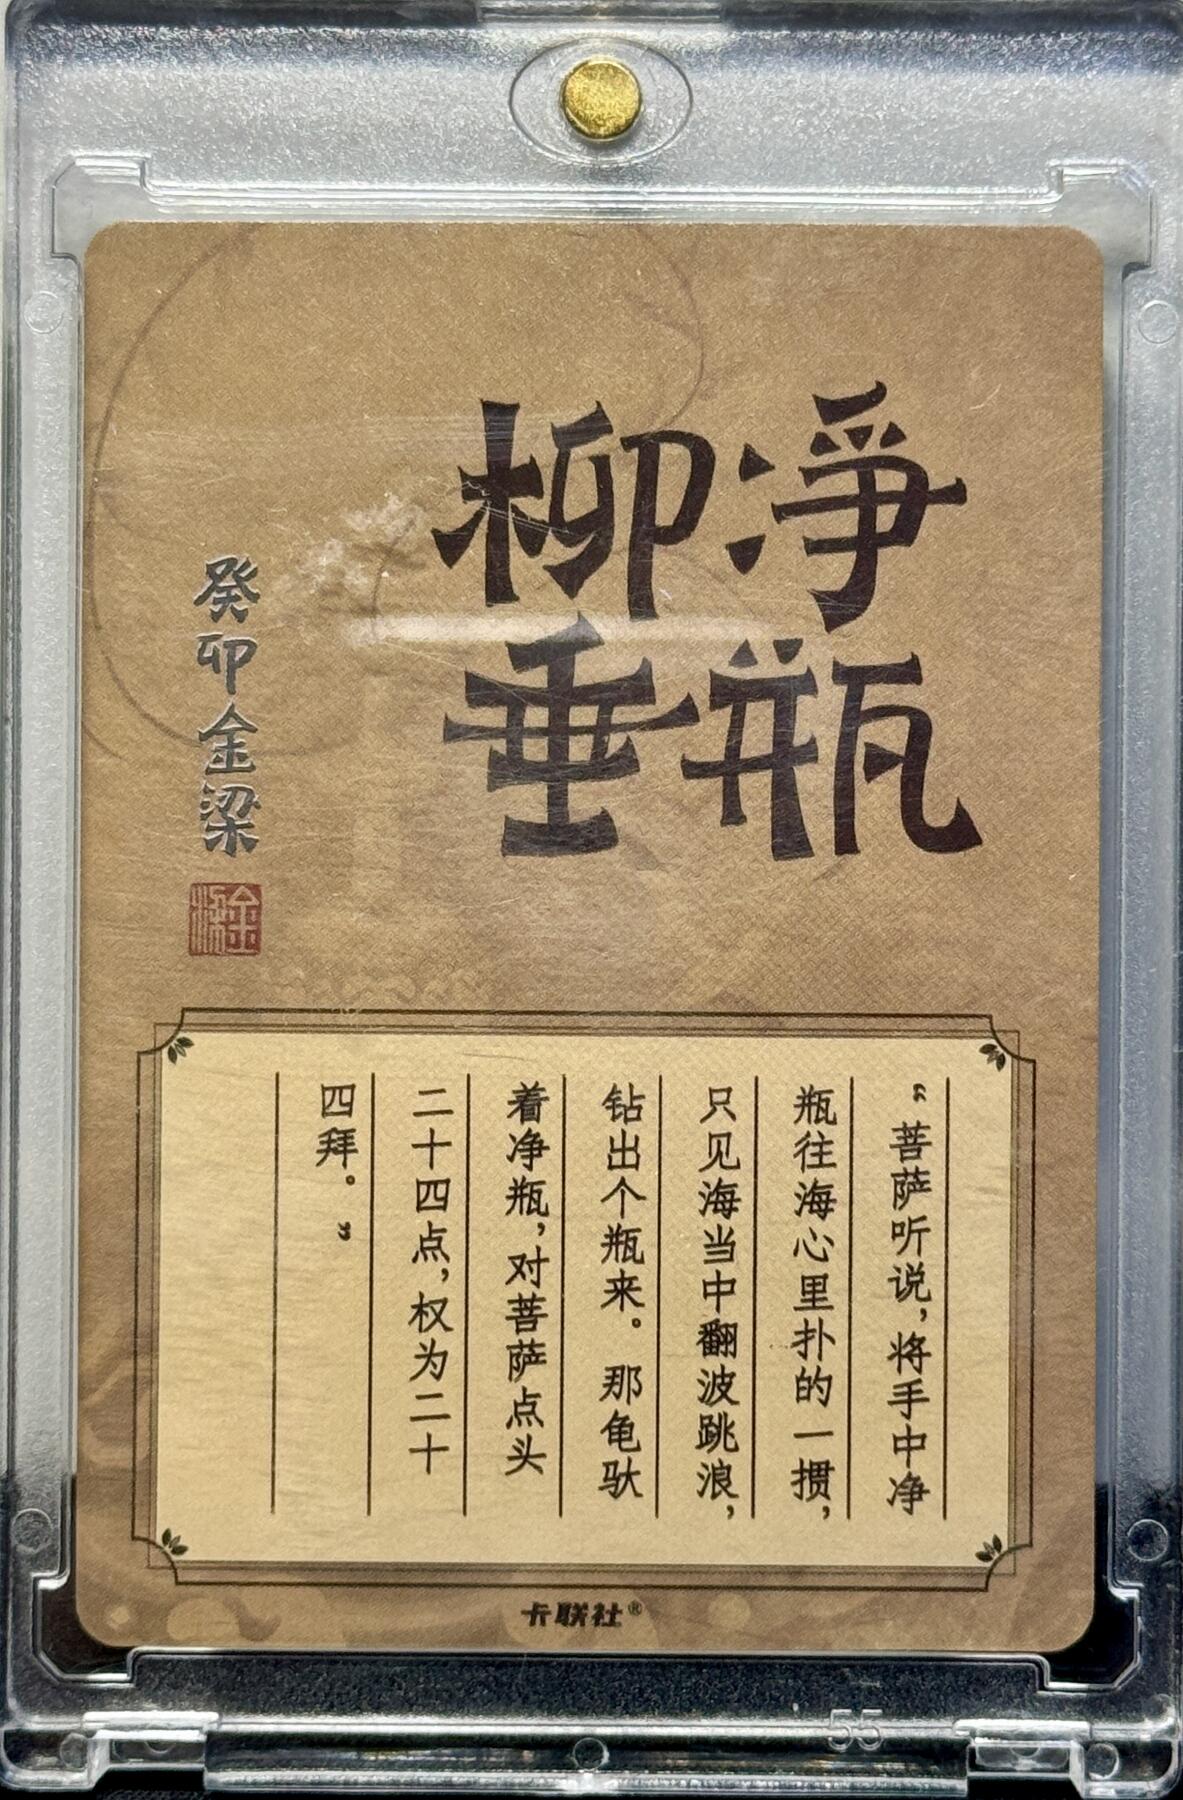 淨瓶
柳垂
癸卯金梁
金梁
“菩萨听说，将手中净
瓶往海心里扑的一掼，
只见海当中翻波跳浪，
钻出个瓶来。那龟驮
着净瓶，对菩萨点头
二十四点，权为二十
四拜。”
卡联社®
55